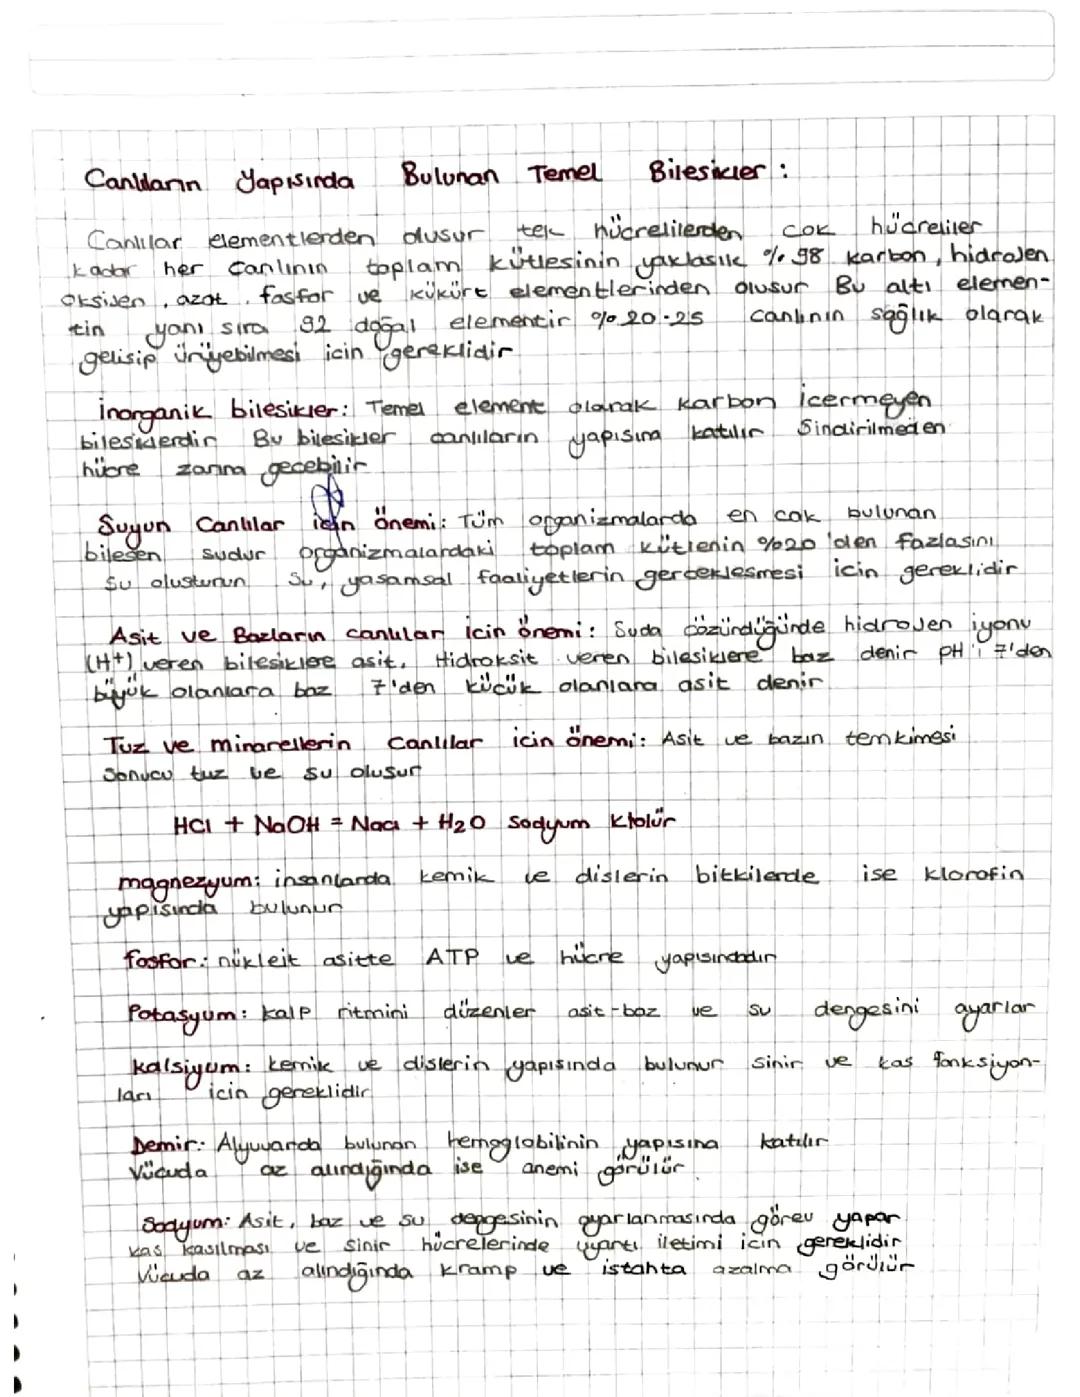 Canlıların Yapısında Bulunan Temel Bilesikler :
Canlılar elementlerden olusur tek hücrelilerden cok hücreliler
kadar her canlının toplam kütlesinin yaklasık %98 karbon, hidrojen
oksijen, azot, fosfor ve kükürt elementlerinden olusur Bu altı elemen-
tin yanı sıra 92 doğal elementir %20-25 canlının sağlık olarak
gelisip üriyebilmesi icin gereklidir
inorganik bilesikler: Temel element olarak karbon icermeyen
bilesiklerdir Bu bilesikler canlıların yapısına katılır Sindirilmeden
hücre zarına gecebilir
Suyun Canlılar icin önemi: Tüm organizmalarda en cok bulunan
bileşen sudur organizmalardaki toplam kütlenin %20'den fazlasını
su olusturun Su, yasamsal faaliyetlerin gerceklesmesi icin gereklidir
Asit ve Bazların canlılar icin önemi: Suda cözündüğünde hidrojen iyonu
(H+) veren bilesiklere asit, Hidroksit veren bilesiklere baz denir pH'ı 7'den
büyük olanlara baz 7'den kücük olanlara asit denir
Tuz ve minarellerin Canlılar icin önemi: Asit ve bazın temkimesi
Sonucu tuz ve su olusur
HCl + NaOH = Nacl + H2O Sodyum Ktolür
magnezyum: insanlarda kemik ve dislerin bitkilerde ise klorofin
yapısında bulunur
fosfor: nükleit asitte ATP ve hücre yapısındadır
Potasyum: kalp ritmini düzenler asit-baz ve su dengesini ayarlar
kalsiyum: kemik ve dislerin yapısında bulunur sinir ve kas fonksiyon-
ları icin gereklidir
Demir: Alyuvarda bulunan hemoglobilinin yapısına katılır
Vücuda az alındığında ise anemi görülür
Sodyum: Asit, baz ve su dengesinin ayarlanmasında görev yapar
kas kasılması ve sinir hücrelerinde uyartı iletimi icin gereklidir
Vücuda az alındığında kramp ve istahta azalma görülür